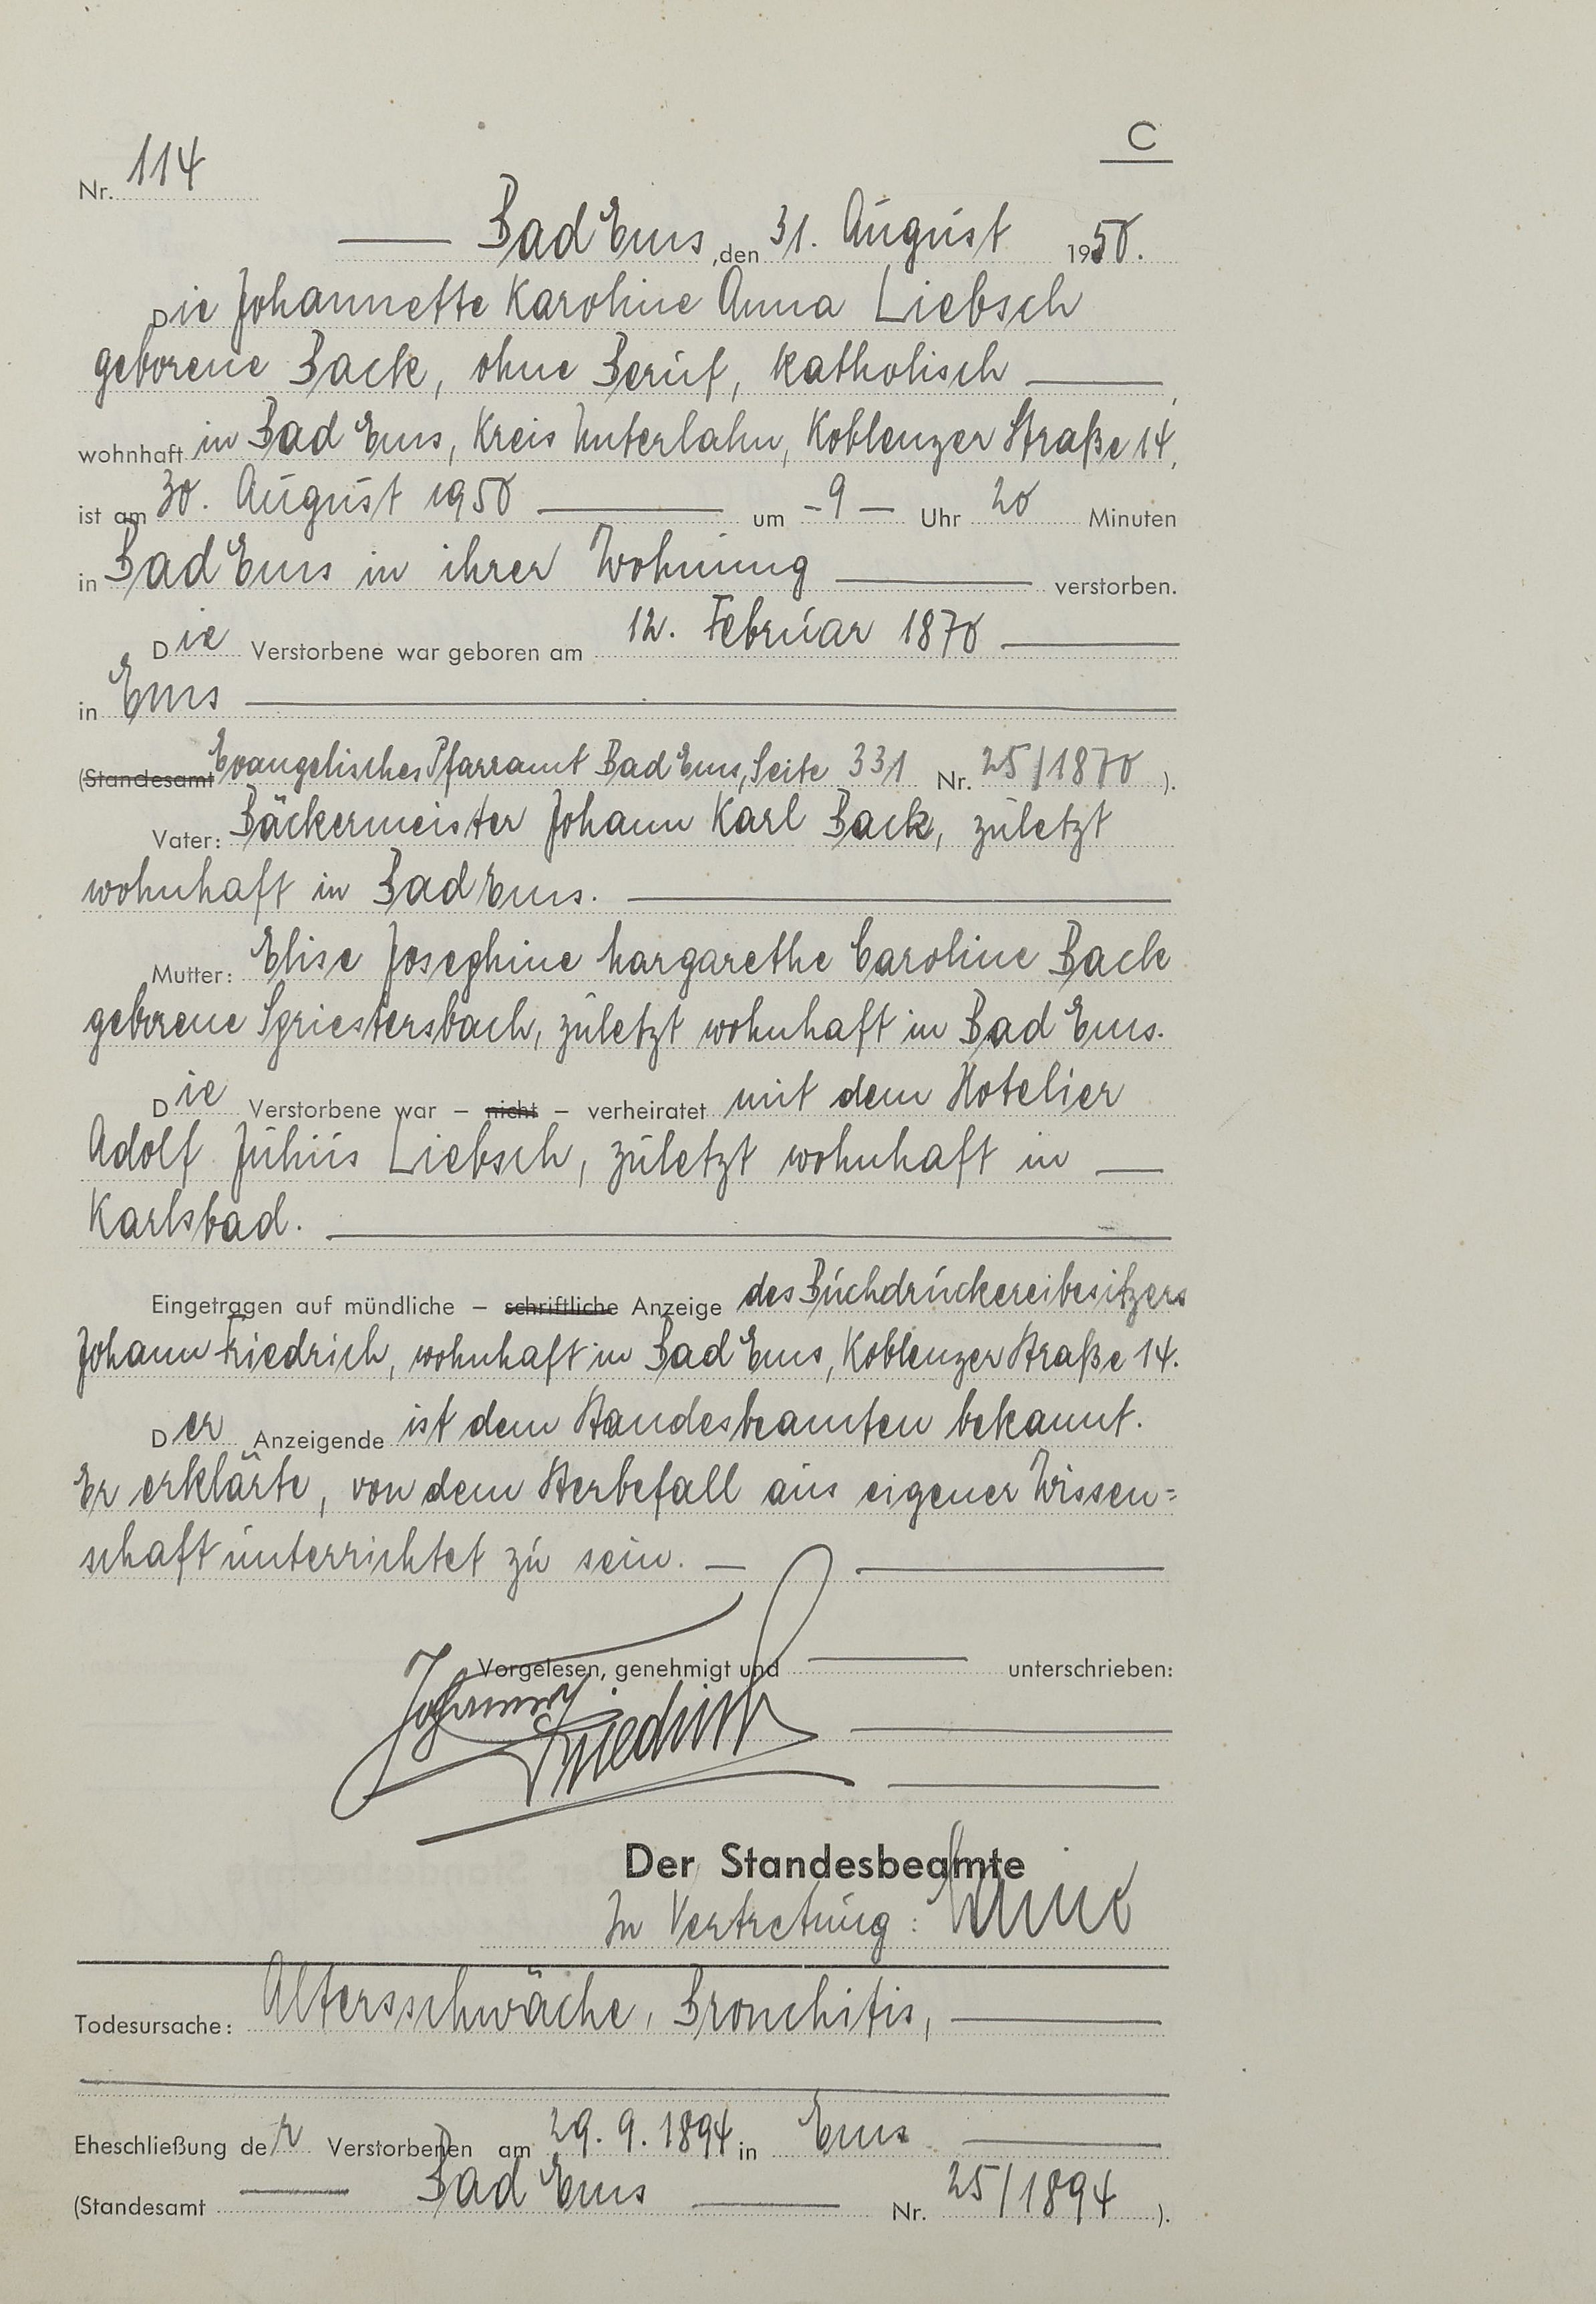 C
Nr. 114
Bad Ems, den 31. August 1950.
Die Johannette Karoline Anna Liebsch
geborene Back, ohne Beruf, katholisch,
wohnhaft in Bad Ems, Kreis Unterlahn, Koblenzer Straße 14,
ist am 30. August 1950 um -9- Uhr 20 Minuten
in Bad Ems in ihrer Wohnung verstorben.
Die Verstorbene war geboren am 12. Februar 1870
in Ems
(Standesamt Evangelisches Pfarramt Bad Ems, Seite 331 Nr. 25/1870 ).
Vater: Bäckermeister Johann Karl Back, zuletzt
wohnhaft in Bad Ems.
Mutter: Elise Josephine Margarethe Caroline Back
geborene Spriestersbach, zuletzt wohnhaft in Bad Ems.
Die Verstorbene war – nicht – verheiratet mit dem Hotelier
Adolf Julius Liebsch, zuletzt wohnhaft in
Karlsbad.
Eingetragen auf mündliche – schriftliche Anzeige des Buchdruckereibesitzers
Johann Friedrich, wohnhaft in Bad Ems, Koblenzer Straße 14.
Der Anzeigende ist dem Standesbeamten bekannt.
Er erklärte, von dem Sterbefall aus eigener Wissen=
schaft unterrichtet zu sein.
Vorgelesen, genehmigt und unterschrieben:
Johann
Friedrich
Der Standesbeamte
In Vertretung:
Todesursache: Altersschwäche, Bronchitis,
Eheschließung der Verstorbenen am 29. 9. 1894 in Ems
(Standesamt Bad Ems Nr. 25/1894 ).